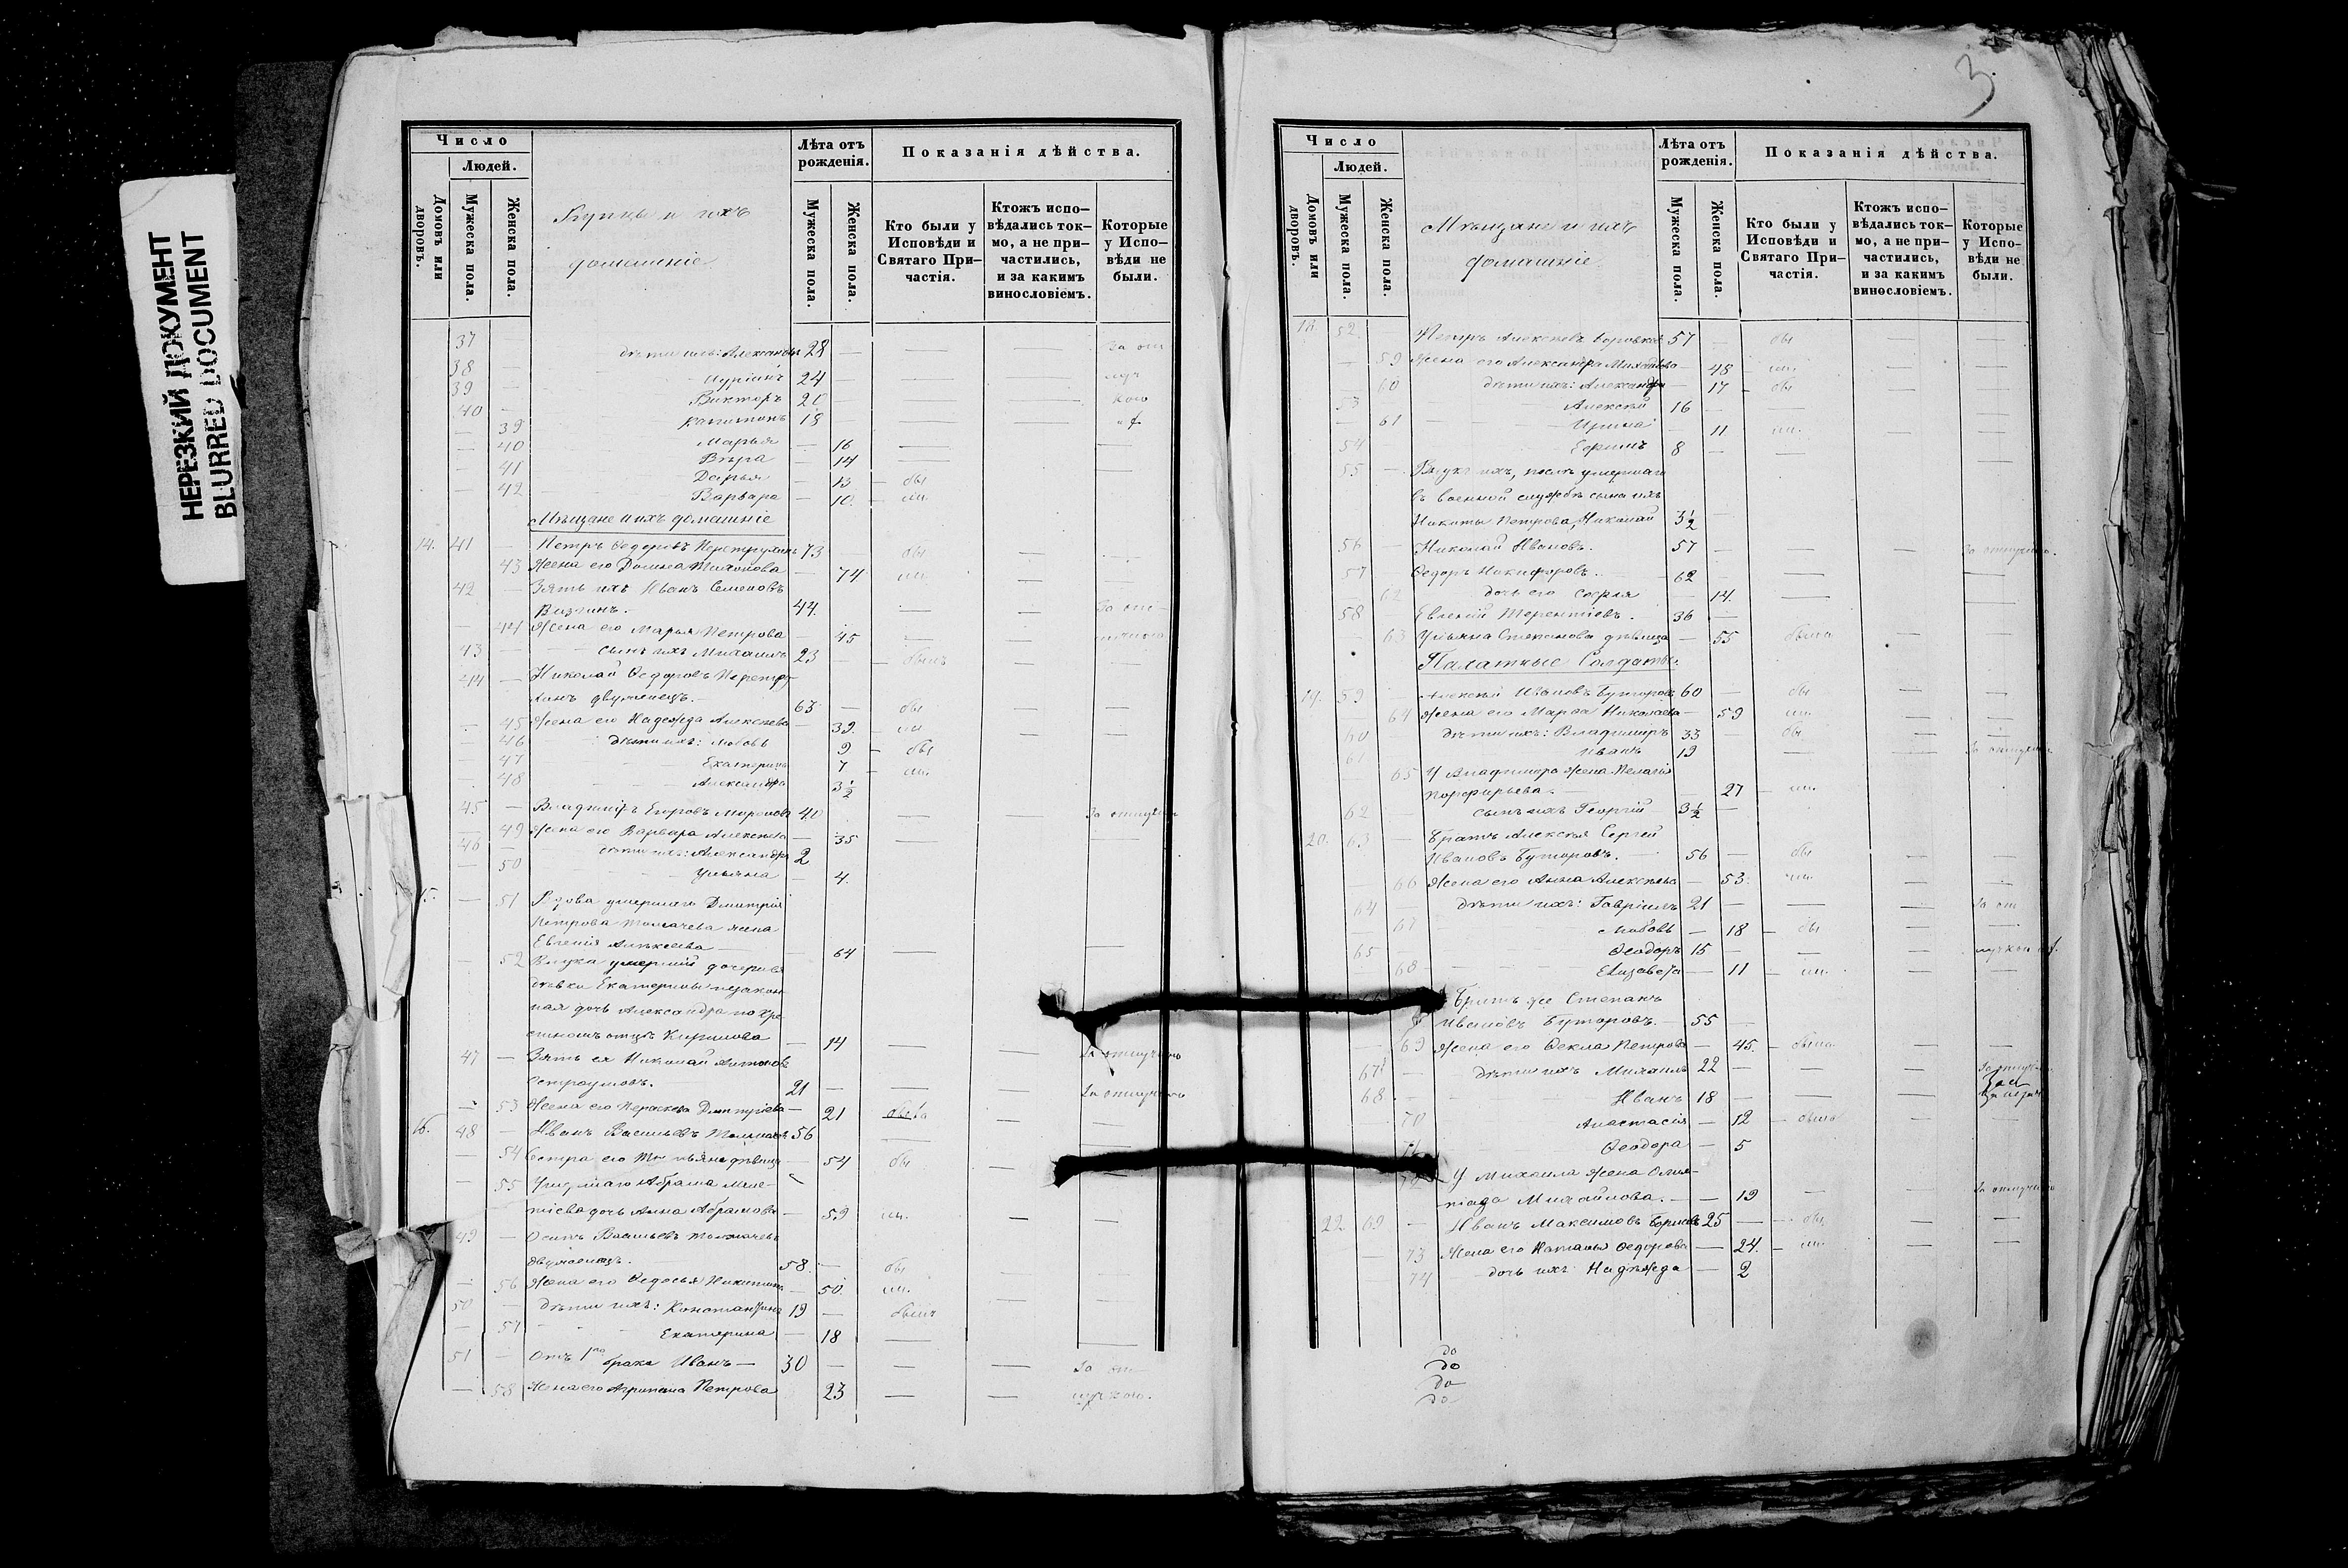 НЕРЕЗКИЙ ДОКУМЕНТ
BLURRED DOCUMENT
Число
Людей.
Домовъ или дворовъ.
Мужеска пола.
Женска пола.
Купцы и ихъ
домашніе
Лѣта отъ рожденія.
Мужеска пола.
Женска пола.
Показанія дѣйства.
Кто были у Исповѣди и Святаго При-частія.
Ктожъ испо-вѣдались ток-мо, а не при-частились, и за какимъ винословіемъ.
Которые у Испо-вѣди не были.
37 — дѣти ихъ: Александръ 28 — За от
38 — 24 — луч
39 — Викторъ 20 — кою
40 — Капитонъ 18 —
— 39 Марья — 16
— 40 Вѣра — 14
— 41 Дарья — 13 — бы
— 42 Варвара — 10. — ли.
Мѣщане и ихъ домашніе
14. 41 — Петръ Ѳедоровъ 73 — бы
— 43 Жена его Домна Тихонова — 74 ли
42 — Зять ихъ Иванъ Семеновъ
44. — За от-
— 44 Жена его Марья Петрова — 45 лучкою
43 — сынъ ихъ Михаилъ 23 — былъ
44 — Николай Ѳедоровъ
двуженецъ. 63 — бы
— 45 Жена его Надежда Алексѣева — 39. ли
— 46 дѣти ихъ: Любовь 9 — бы
— 47 Екатерина 7 — ли.
48 Александра 3½
45 — Владиміръ Егоровъ 40 За отлуч
— 49 Жена его Варвара Алексѣева — 35
46 — дѣти ихъ: Александръ 2
— 50 Ульяна — 4.
15. — 51 Вдова умершаго Дмитрія
Петрова Толмачева жена
Евгенія Алексѣева — 64
— 52 Внука умершей дочери
дѣвки Екатерины незакон-
ная дочь Александра по кре-
стномъ отцѣ Кирилова — 14
47 — Зять ея Николай Антоновъ За отлучкою
Остроумовъ. 21 — За отлучкою
— 53 Жена его Параскева Дмитріева — 21 была
16. 48 — Иванъ Васильевъ Толмачевъ 56
— 54 Сестра его Татьяна дѣвица — 54 бы
— 55 Абрама
дочь Анна Абрамова — 59 ли.
49 — Осипъ Васильевъ Толмачевъ
двуженецъ. — 58. — бы
— 56 Жена его Ѳедосья Никитина — 50. ли.
50 — дѣти ихъ: Константинъ 19 — былъ
— 57 — Екатерина — 18
51 — Отъ 1го брака Иванъ — 30 — За от
— 58 Жена его Агрипина Петрова 23 — лучкою.
3
Число
Людей.
Домовъ или дворовъ.
Мужеска пола.
Женска пола.
Мѣщане и ихъ
домашніе
Лѣта отъ рожденія.
Мужеска пола.
Женска пола.
Показанія дѣйства.
Кто были у Исповѣди и Святаго При-частія.
Ктожъ испо-вѣдались ток-мо, а не при-частились, и за какимъ винословіемъ.
Которые у Испо-вѣди не были.
18. 52 — Петръ Алексѣевъ 57 — бы
— 59 Жена его Александра Михайлова — 48 — ли
— 60 дѣти ихъ: Александра — 17 — бы
53 Алексѣй 16 —
— 61 Ирина — 11 ли.
54 Ефимъ 8 —
55 — Внукъ ихъ, послѣ умершаго
въ военной службѣ сына ихъ
Никиты Петрова, Николай 3½ —
56 — Николай Ивановъ. 57 — За отлучкою.
57 Ѳедоръ Никифоровъ. — 62 —
— 62 дочь его Софья — 14.
58 Евгеній Терентіевъ. 36 —
— 63 Ульяна Степанова дѣвица — 55 была
Палатные Солдаты.
19. 59 — Алексѣй Ивановъ Буторовъ 60 — бы
64 Жена его Марѳа Николаева — 59 ли.
60 дѣти ихъ: Владиміръ 33 — бы
61 Иванъ 19 За отлучкою
65 У Владиміра жена Пелагія
Порфирьева. — 27 — ли.
62 — сынъ ихъ Георгій 3½ —
20. 63 — Братъ Алексѣя Сергѣй
Ивановъ Буторовъ. — 56 — бы
— 66 Жена его Анна Алексѣева — 53. ли.
64 — дѣти ихъ: Гавріилъ 21 — За от
— 67 Любовь — 18 — бы
65 Ѳеодоръ 15 — лучкою
68 — Елизавета — 11 — ли.
Братъ же Степанъ
Ивановъ Буторовъ. — 55 —
— 69 Жена его Ѳекла Петрова — 45. — была
67 — дѣти ихъ Михаилъ 22 — За отлуч
68 Иванъ 18 —
70 Анастасія — 12 — была
71 Ѳеодора — 5
72 У Михаила жена Олим-
піада Михайлова. — 19 За отлучкою
22. 69 — Иванъ Максимовъ 25 — бы
— 73 Жена его Наталья Ѳедорова — 24. — ли.
74 — дочь ихъ Надежда — 2
до
до
до
до